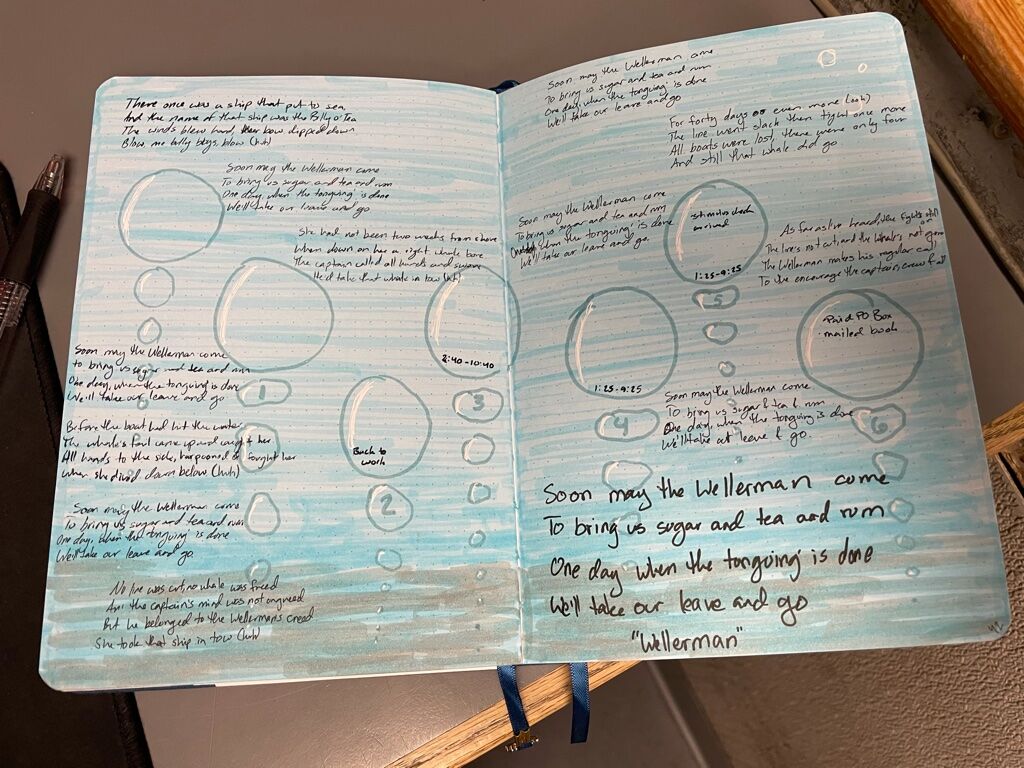 There once was a ship that put to sea
And the name of that ship was the Billy o' Tea
The winds blew hard, her bow dipped down
Blow me bully boys, blow (huh)
Soon may the Wellerman come
To bring us sugar and tea and rum
One day, when the tonguing is done
We'll take our leave and go
She had not been two weeks from shore
When down on her a right whale bore
The captain called all hands and swore
He'd take that whale in tow (huh)
2:40-10:40
Soon may the Wellerman come
to bring us sugar and tea and rum
One day, when the tonguing is done
We'll take our leave and go
1
3
Before the boat had hit the water
The whale's tail came up and caught her
All hands to the side, harpooned & fought her
When she dived down below (huh)
Back to
work
2
Soon may the Wellerman come
To bring us sugar and tea and rum
One day, when the tonguing is done
We'll take our leave and go.
No line was cut, no whale was freed
And the captain's mind was not on greed
But he belonged to the Wellerman's creed
She took that ship in tow (huh)
Soon may the Wellerman come
To bring us sugar and tea and rum
One day, when the tonguing is done
We'll take our leave and go
For forty days or even more (ooh)
The line went slack then tight once more
All boats were lost, there were only four
And still that whale did go.
Soon may the Wellerman come
To bring us sugar and tea and rum
when the tonguing is done
We'll take our leave and go.
stimulus check
arrived
1:25-9:25
5
As far as I've heard, the fight's still
The line's not cut, and the whale's not gone
The Wellerman makes his regular call
To encourage the captain, crew & all
1:25-9:25
4
Paid PO Box
mailed book
6
Soon may the Wellerman come
To bring us sugar & tea & rum
One day, when the tonguing is done
We'll take out leave & go.
Soon may the Wellerman come
To bring us sugar and tea and rum
One day when the tonguing is done
We'll take our leave and go
"Wellerman"